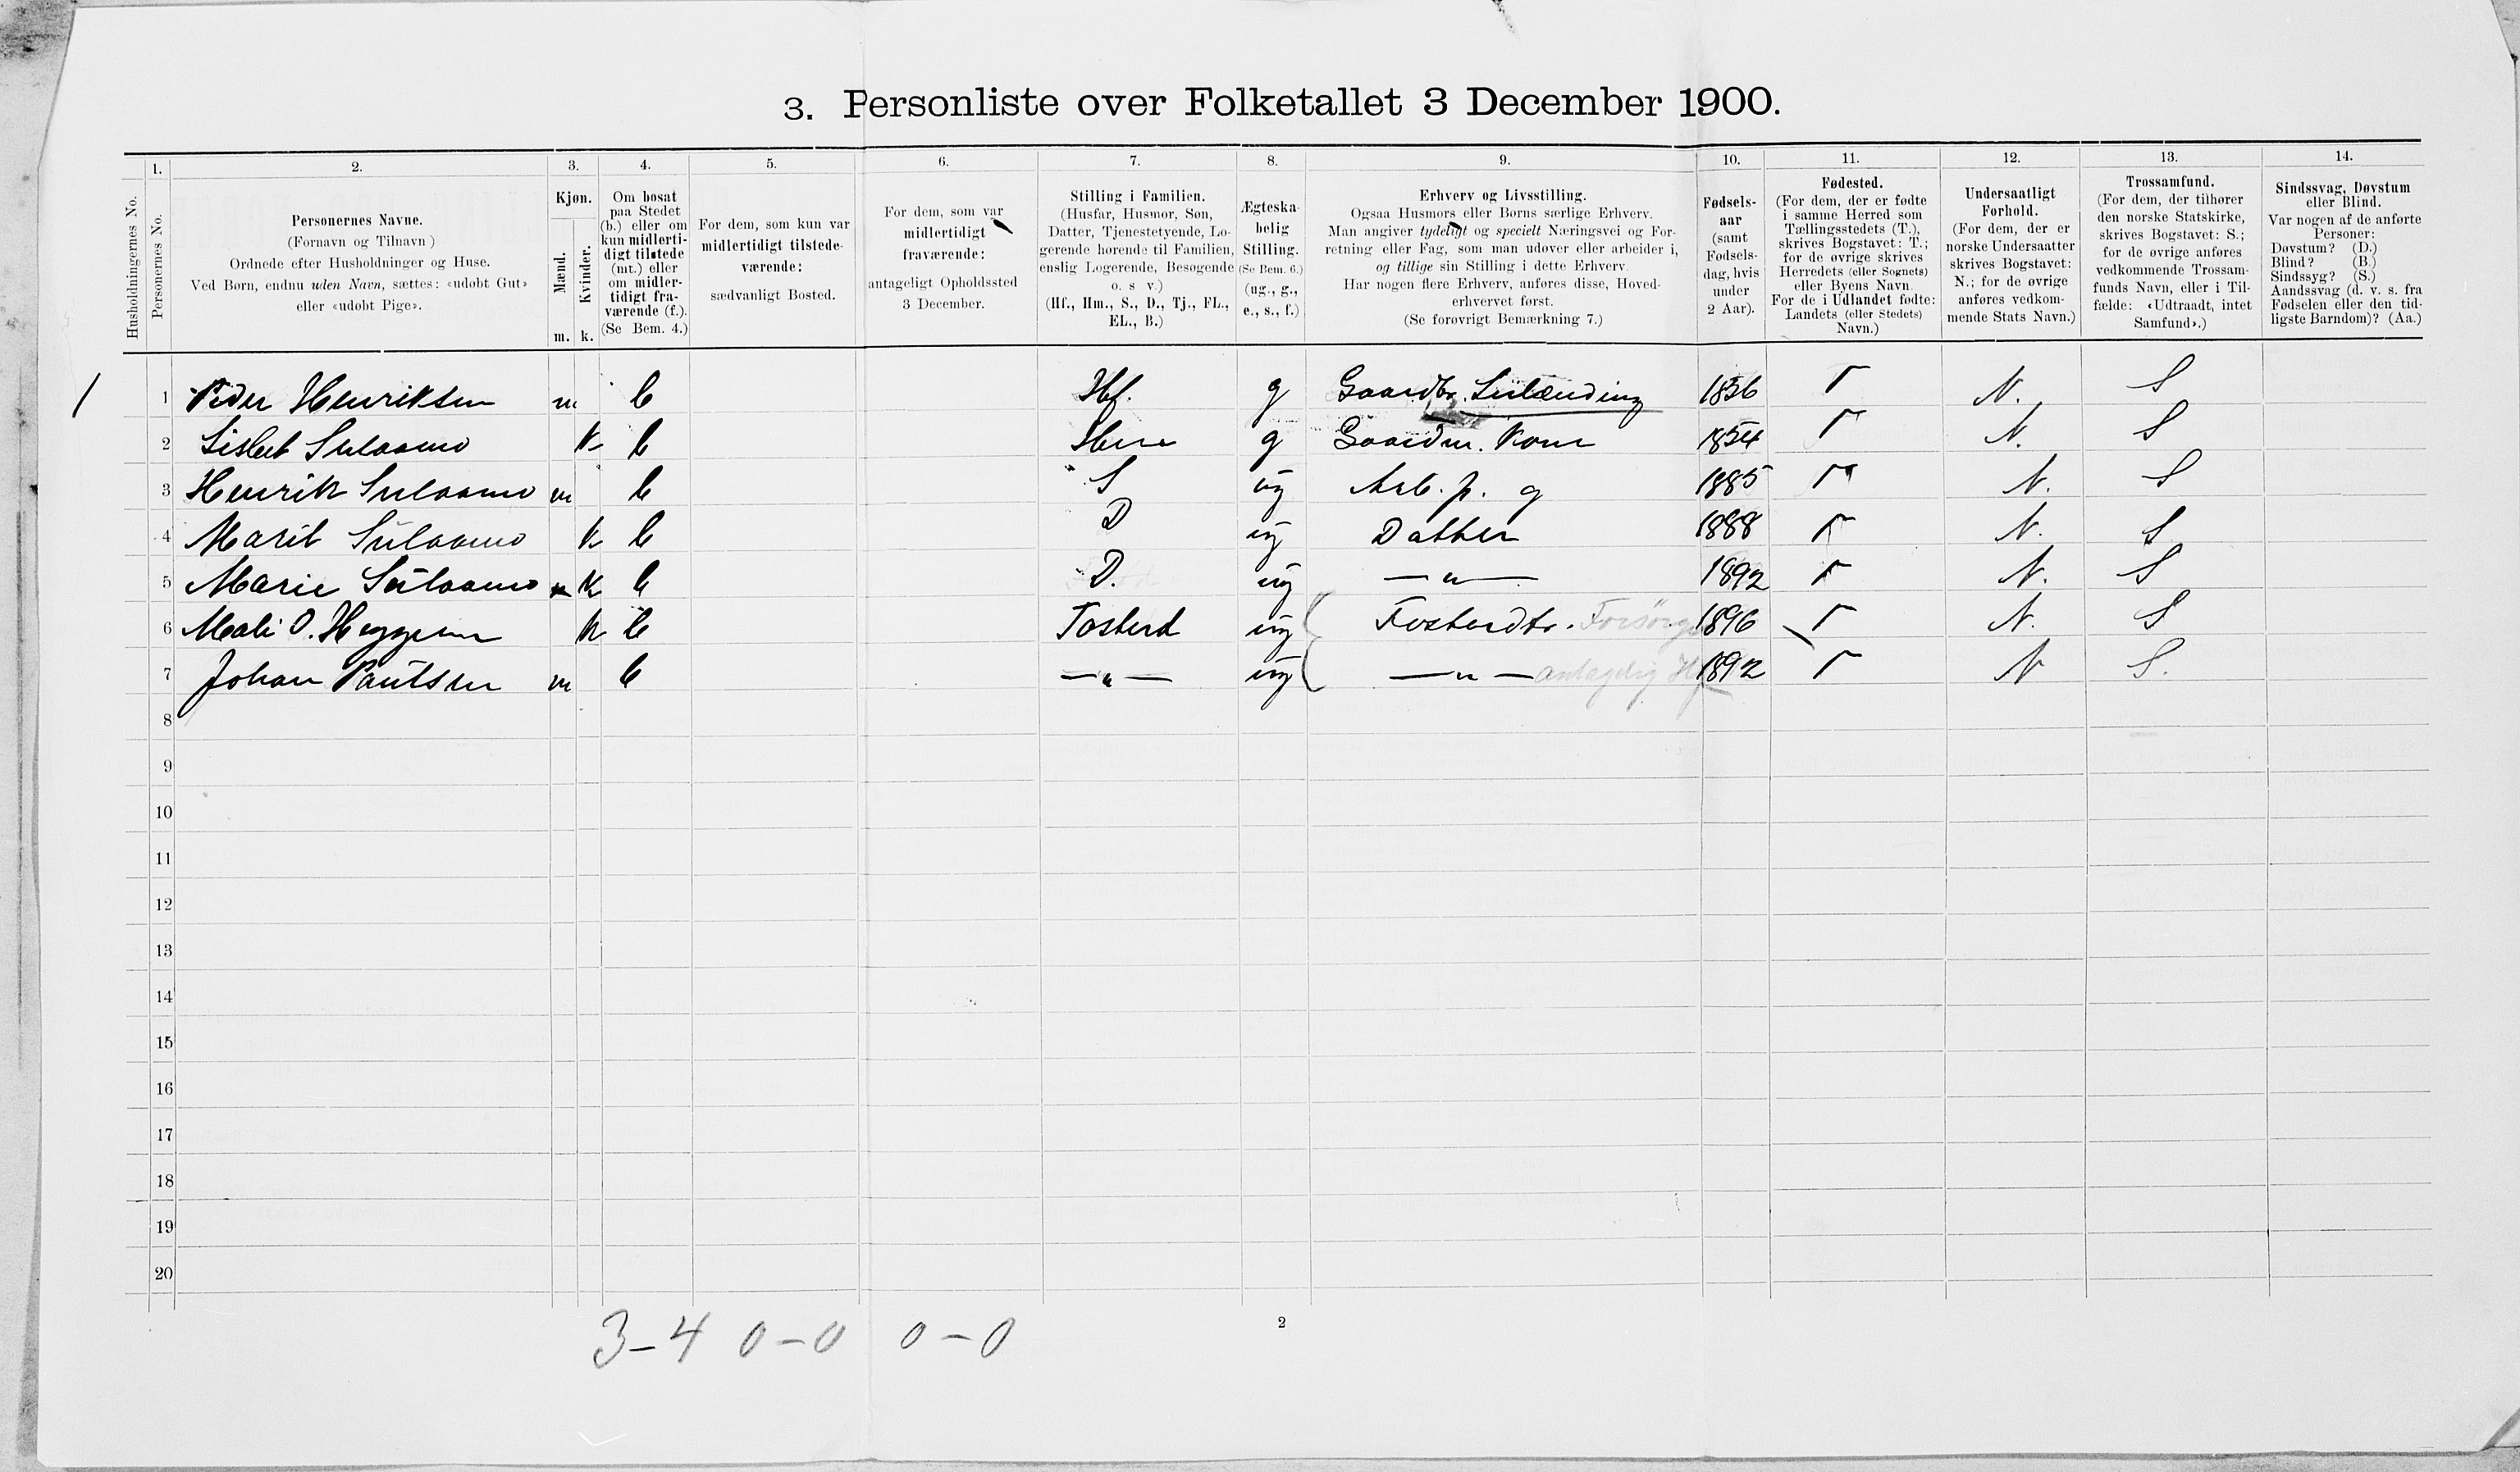 3. Personliste over Folketallet 3 December 1900.
1. 2. 3. 4. 5. 6. 7. 8. 9. 10. 11. 12. 13. 14.
Husholdningernes No.
Personernes No.
Personernes Navne.
(Fornavn og Tilnavn)
Ordnede efter Husholdninger og Huse.
Ved Børn, endnu uden Navn, sættes: «udøbt Gut»
eller «udøbt Pige».
Kjøn.
Mænd.
Kvinder.
m. k.
Om bosat
paa Stedet
(b.) eller om
kun midlerti-
digt tilstede
(mt.) eller
om midler-
tidigt fra-
værende (f.).
(Se Bem. 4.)
For dem, som kun var
midlertidigt tilstede-
værende:
sædvanligt Bosted.
For dem, som var
midlertidigt
fraværende:
antageligt Opholdssted
3 December.
Stilling i Familien.
(Husfar, Husmor, Søn,
Datter, Tjenestetyende, Lo-
gerende hørende til Familien,
enslig Logerende, Besøgende
o. s v.)
(Hf., Hm., S., D., Tj., FL.,
EL., B.)
Ægteska-
belig
Stilling.
(Se Bem. 6.)
(ug., g.,
e., s., f.)
Erhverv og Livsstilling.
Ogsaa Husmors eller Børns særlige Erhverv.
Man angiver tydeligt og specielt Næringsvei og For-
retning eller Fag, som man udøver eller arbeider i,
og tillige sin Stilling i dette Erhverv.
Har nogen flere Erhverv, anføres disse, Hoved-
erhvervet først.
(Se forøvrigt Bemærkning 7.)
Fødsels-
aar
(samt
Fødsels-
dag, hvis
under
2 Aar).
Fødested.
(For dem, der er fødte
i samme Herred som
Tællingsstedets (T.),
skrives Bogstavet: T.;
for de øvrige skrives
Herredets (eller Sognets)
eller Byens Navn.
For de i Udlandet fødte:
Landets (eller Stedets)
Navn.)
Undersaatligt
Forhold.
(For dem, der er
norske Undersaatter
skrives Bogstavet:
N.; for de øvrige
anføres vedkom-
mende Stats Navn.)
Trossamfund.
(For dem, der tilhører
den norske Statskirke,
skrives Bogstavet: S.;
for de øvrige anføres
vedkommende Trossam-
funds Navn, eller i Til-
fælde: «Udtraadt, intet
Samfund».)
Sindssvag, Døvstum
eller Blind.
Var nogen af de anførte
Personer:
Døvstum? (D.)
Blind? (B.)
Sindssyg? (S.)
Aandssvag (d. v. s. fra
Fødselen eller den tid-
ligste Barndom)? (Aa.)
1 1 Peder Henriksen m b Hf. g Gaardbr. Selveiende 1856 T N. S
2 Lisbet Sulaamo k b Hm g Gaardm. Kone 1854 T N. S
3 Henrik Sulaamo m b S ug Arb. p. g 1885 T N. S
4 Marit Sulaamo k b D ug Datter 1888 T N. S
5 Marie Sulaamo k b D. ug —"— 1892 T N. S
6 Mali O. Heggem k b Fosterd ug Fosterdtr. Forsørg 1896 T N. S
7 Johan Paulsen m b —"— ug —"— antagelig Hf 1892 T N S.
8
9
10
11
12
13
14
15
16
17
18
19
20
3-4 0-0 0-0
2